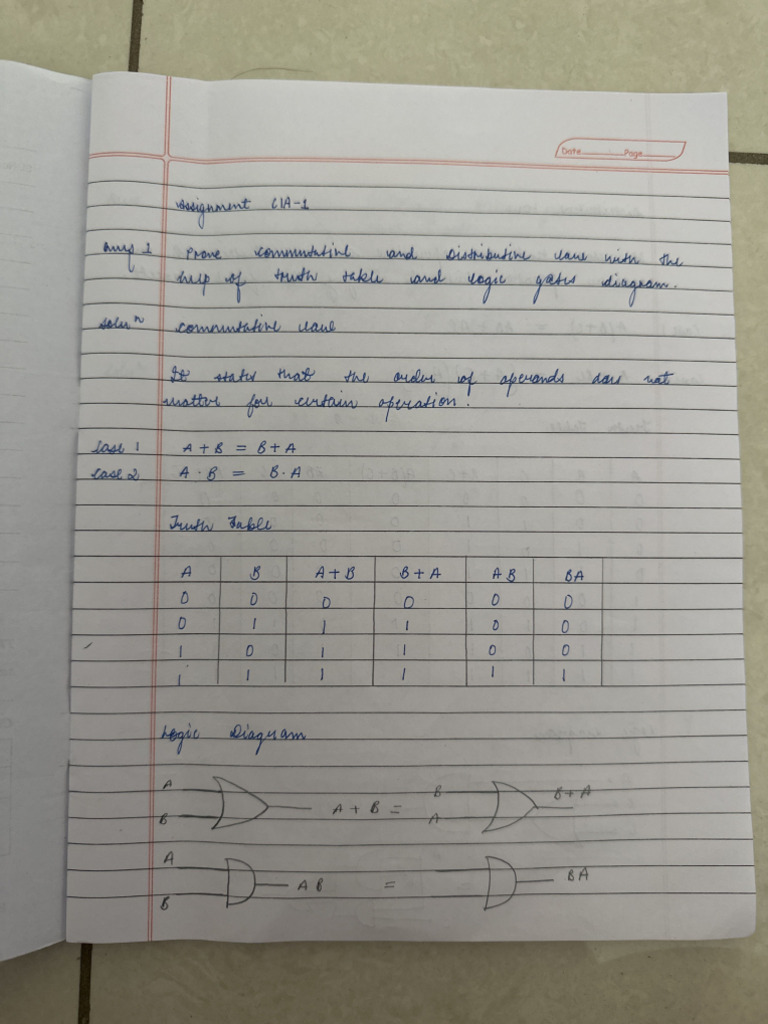 Date Page
Assignment CIA-1
Ques 1 Prove commutative and Distributive law with the
help of truth table and logic gates diagram.
Soluⁿ commutative law
It states that the order of operands does not
matter for certain operation.
Case 1 A + B = B + A
Case 2 A · B = B · A
Truth Table
A B A + B B + A AB BA
0 0 0 0 0 0
0 1 1 1 0 0
1 0 1 1 0 0
1 1 1 1 1 1
Logic Diagram
A B B + A
B A + B = A
A
AB = BA
B